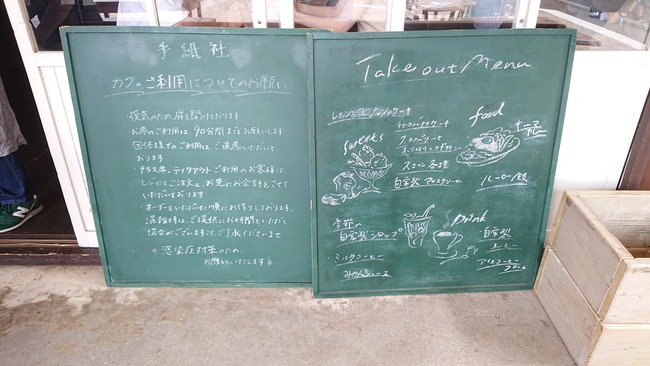 手紙社
カフェご利用についてのお願い
・換気のため、扉を開けております
・お席のご利用は、90分間までにお願いします
・団体様でのご利用は、ご遠慮いただいて
おります
・テラス席、テイクアウトご利用のお客様は、
レジにてご注文と、お先にお会計とさせて
いただいております
・オーダーをいただいた順にお作りしております
混雑時は、ご提供にお時間をいただく
場合がございます。ご了承くださいませ
※感染症対策のため
お願いいたします
Take out Menu
sweets
スコーン各種
自家製アイスクリーム
food
キーマ
カレー
ルーロー飯
季節の
自家製シロップ
ミルクコーヒー
みかんジュース
Drink
自家製
コーヒー
アイスコーヒー